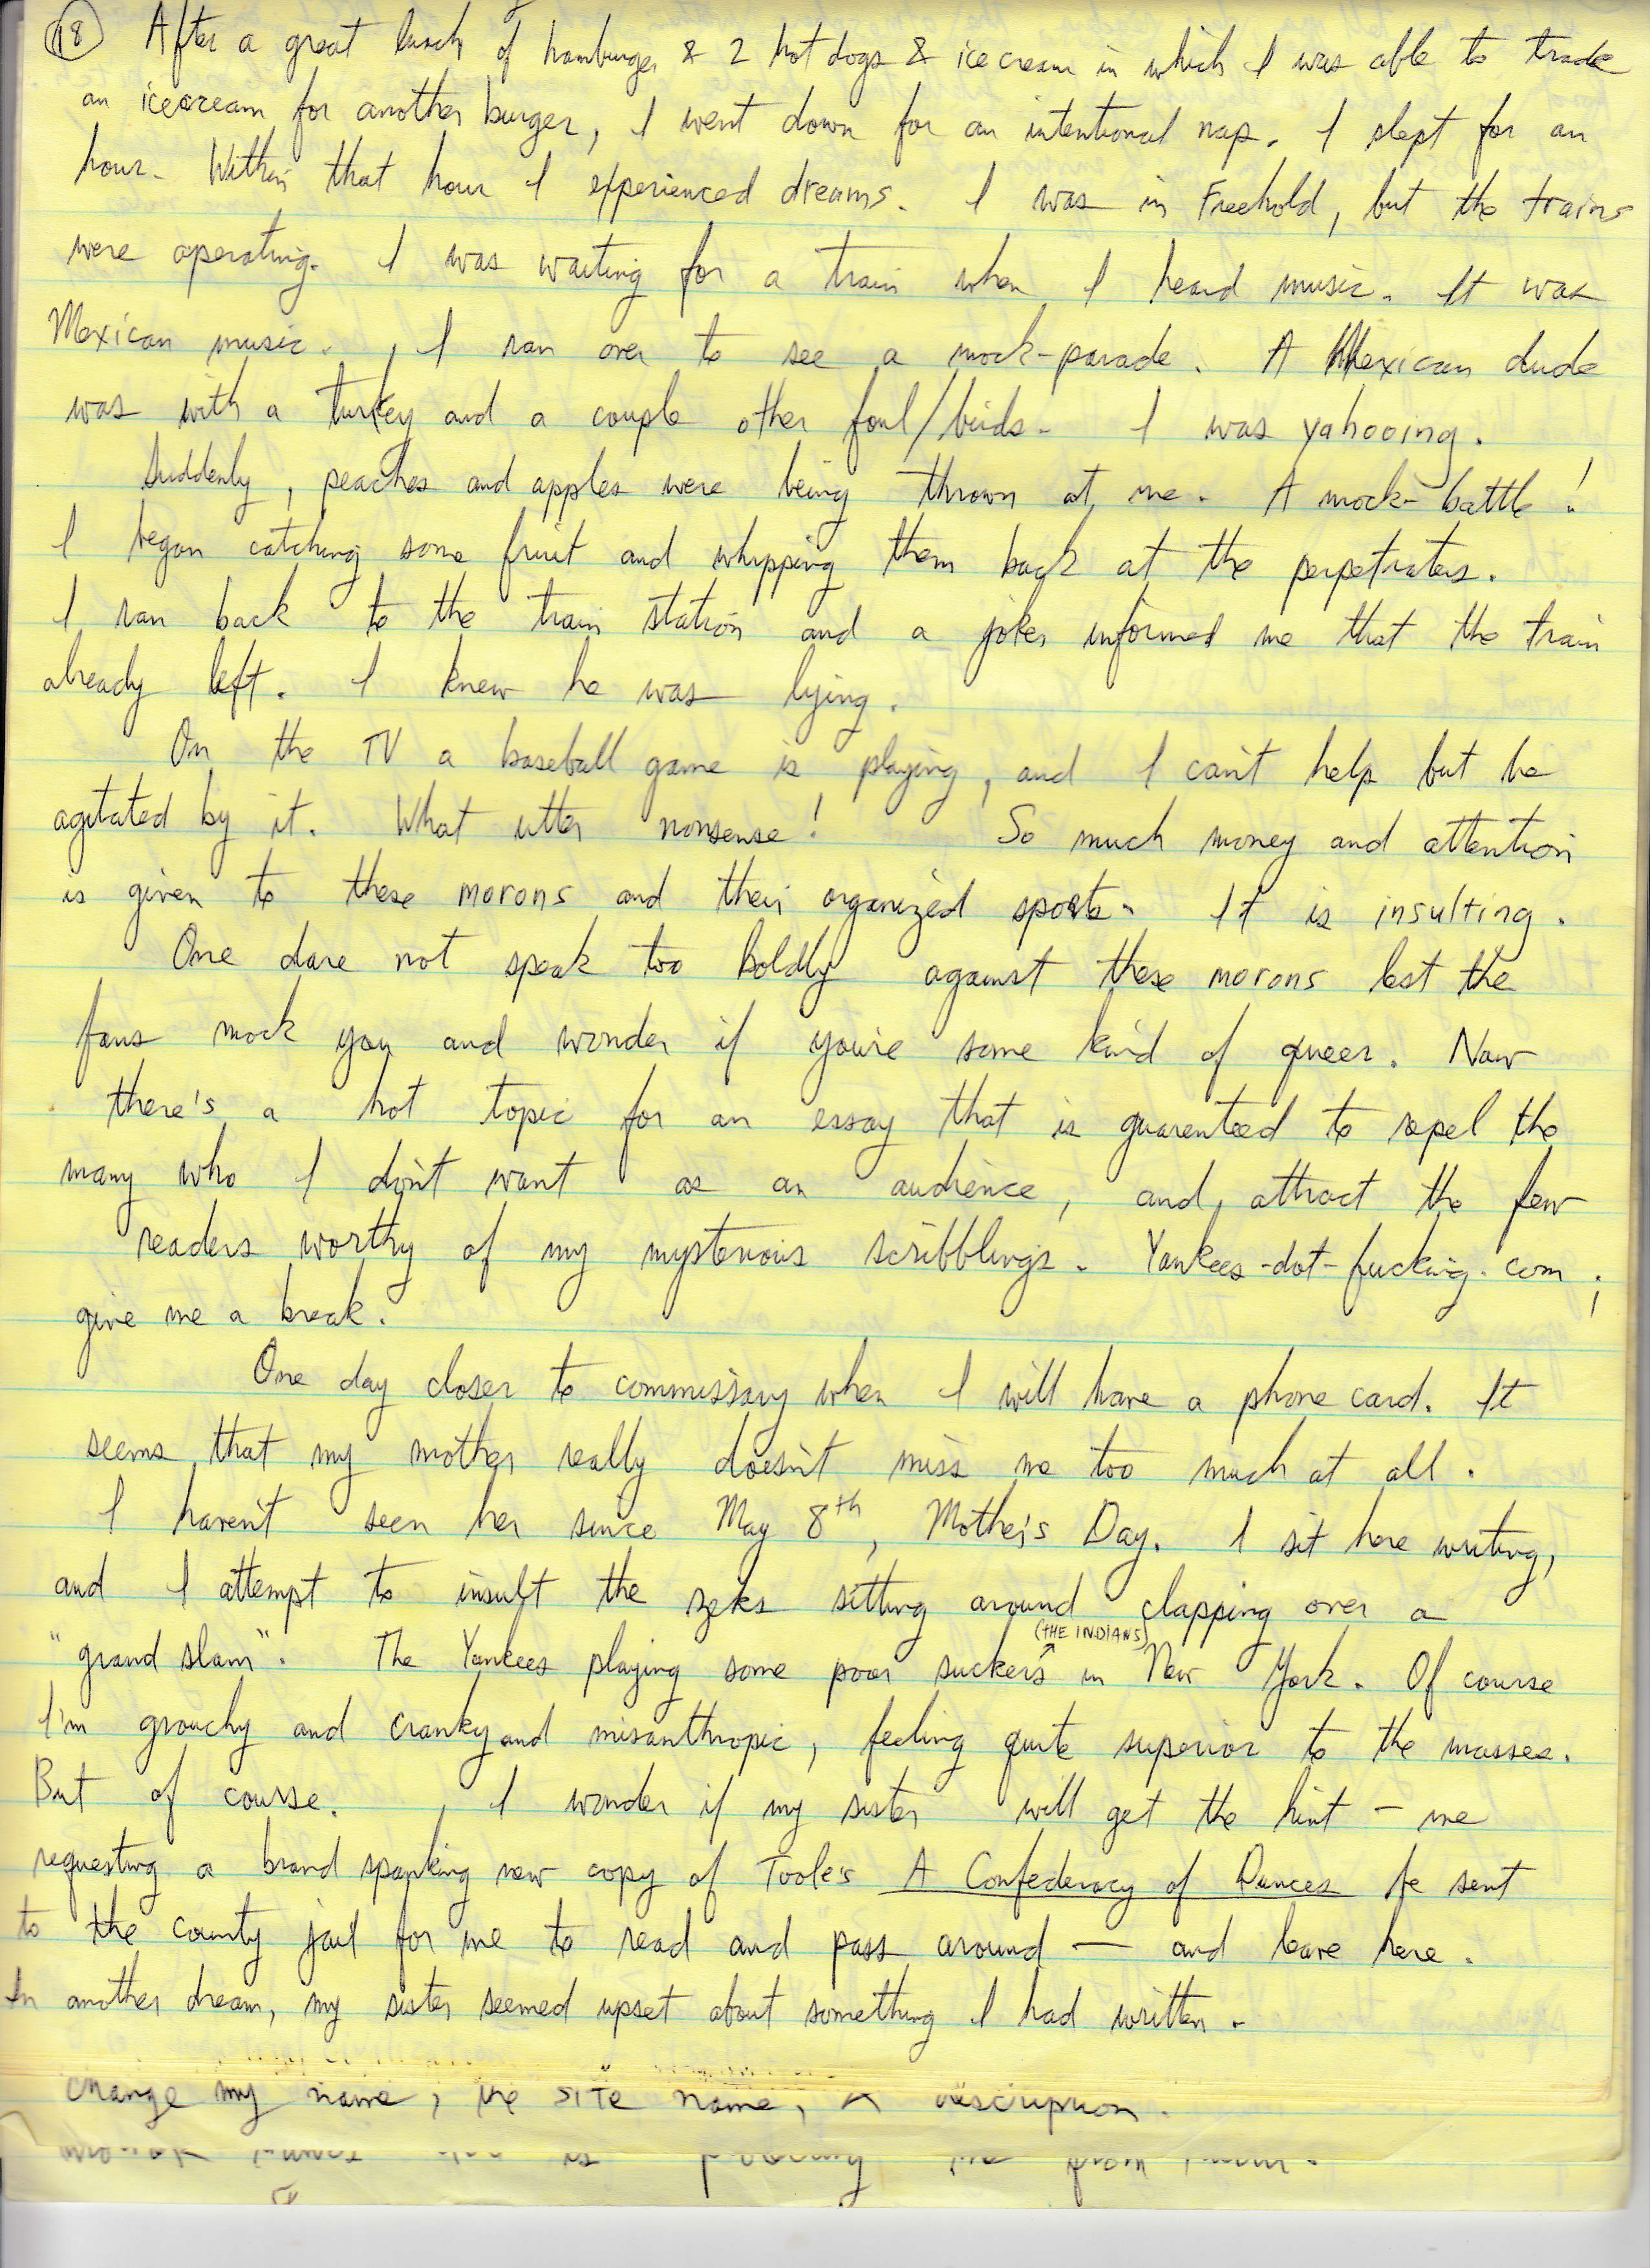 (18) After a great lunch of hamburger & 2 hot dogs & icecream in which I was able to trade
an icecream for another burger, I went down for an intentional nap. I slept for an
hour. Within that hour I experienced dreams. I was in Freehold, but the trains
were operating. I was waiting for a train when I heard music. It was
Mexican music. I ran over to see a mock-parade. A Mexican dude
was with a turkey and a couple other foul/birds. I was yahooing.
Suddenly, peaches and apples were being thrown at me. A mock-battle!
I began catching some fruit and whipping them back at the perpetrators.
I ran back to the train station and a joker informed me that the train
already left. I knew he was lying.
On the TV a baseball game is playing, and I can't help but be
agitated by it. What utter nonsense! So much money and attention
is given to these morons and their organized sports. It is insulting.
One dare not speak too boldly against these morons lest the
fans mock you and wonder if you're some kind of queer. Now
there's a hot topic for an essay that is guarenteed to repel the
many who I don't want as an audience, and attract the few
readers worthy of my mysterious scribblings. Yankees-dot-fucking.com;
give me a break.
One day closer to commissary when I will have a phone card. It
seems that my mother really doesn't miss me too much at all.
I haven't seen her since May 8th, Mother's Day. I sit here writing,
and I attempt to insult the zeks sitting around clapping over a
(THE INDIANS)
"grand slam". The Yankees playing some poor suckers in New York. Of course
I'm grouchy and cranky and misanthropic, feeling quite superior to the masses.
But of course. I wonder if my sister will get the hint - me
requesting a brand spanking new copy of Toole's A Confederacy of Dunces be sent
to the county jail for me to read and pass around — and leave here.
In another dream, my sister seemed upset about something I had written.
change my name, the site name, description.